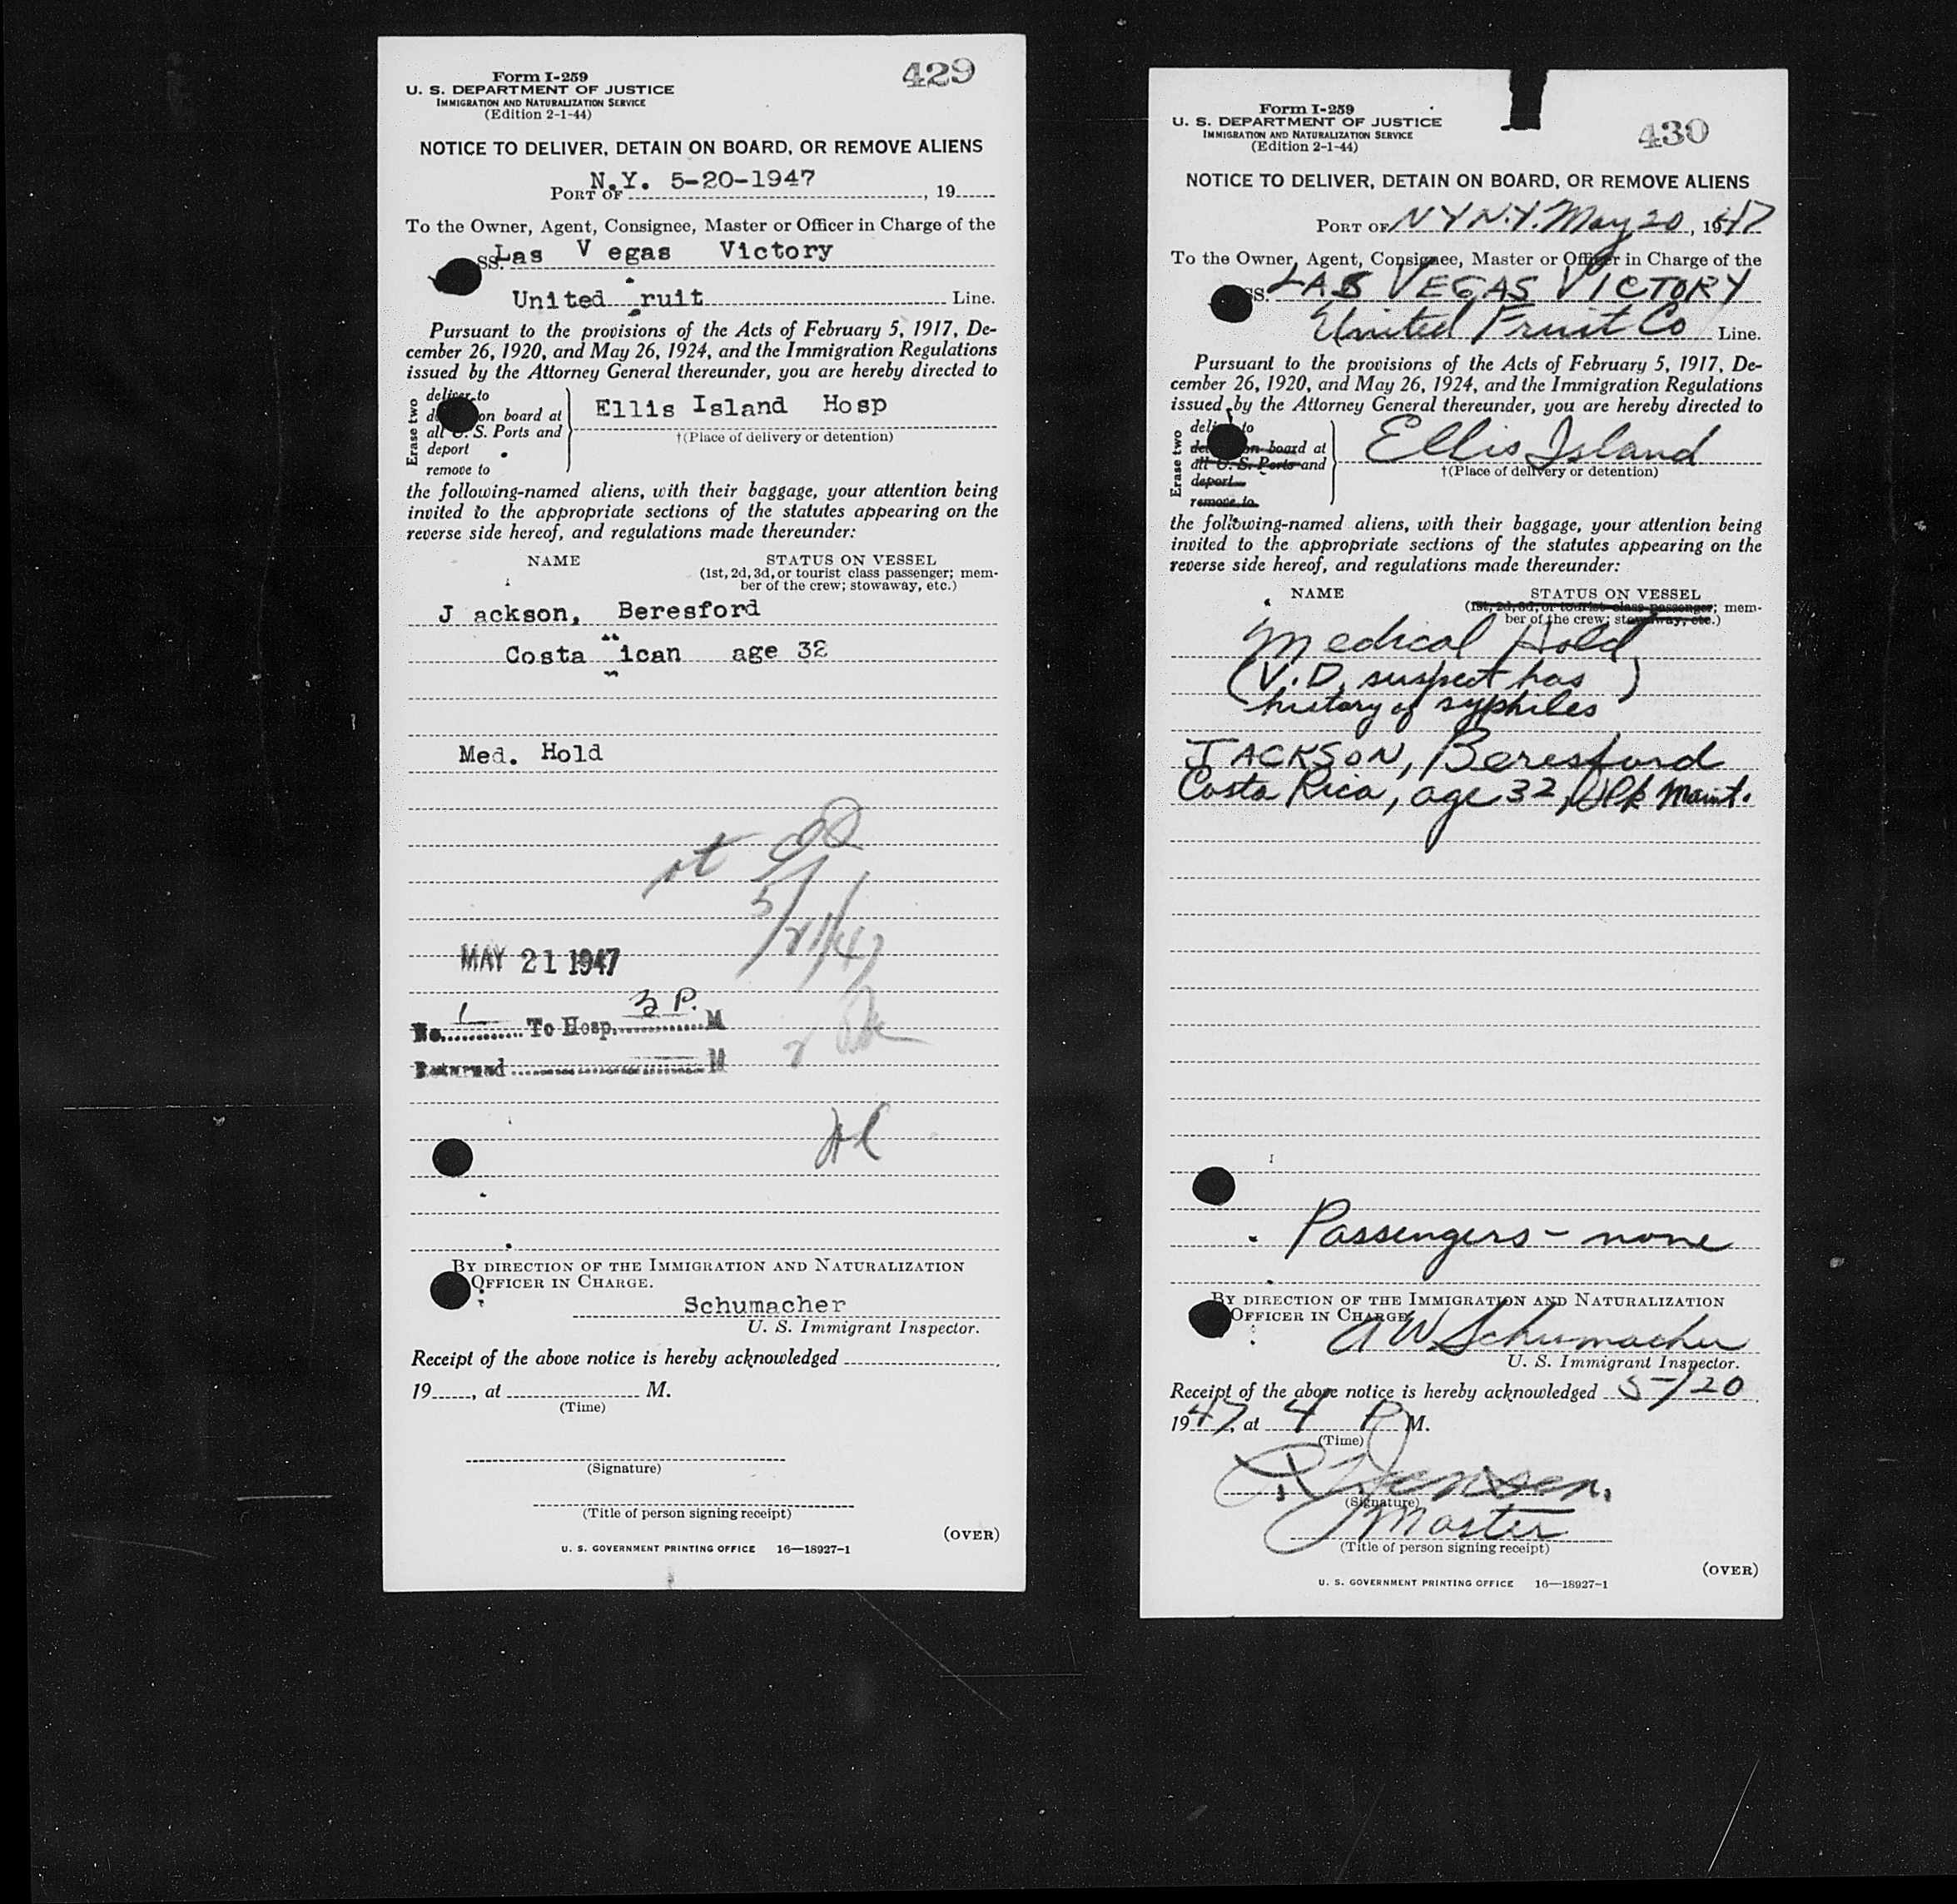 Form I-259
U. S. DEPARTMENT OF JUSTICE
IMMIGRATION AND NATURALIZATION SERVICE
(Edition 2-1-44)
429
NOTICE TO DELIVER, DETAIN ON BOARD, OR REMOVE ALIENS
PORT OF N.Y. 5-20-1947, 19
To the Owner, Agent, Consignee, Master or Officer in Charge of the
SS. Las V egas Victory
United ruit Line.
Pursuant to the provisions of the Acts of February 5, 1917, De-
cember 26, 1920, and May 26, 1924, and the Immigration Regulations
issued by the Attorney General thereunder, you are hereby directed to
Erase two
deliver to
on board at
all U. S. Ports and
deport
remove to
Ellis Island Hosp
†(Place of delivery or detention)
the following-named aliens, with their baggage, your attention being
invited to the appropriate sections of the statutes appearing on the
reverse side hereof, and regulations made thereunder:
NAME STATUS ON VESSEL
(1st, 2d, 3d, or tourist class passenger; mem-
ber of the crew; stowaway, etc.)
J ackson, Beresford
Costa ican age 32
Med. Hold
5/21/47
MAY 21 1947
No. 1 To Hosp. 3 P. M
Returned M
BY DIRECTION OF THE IMMIGRATION AND NATURALIZATION
OFFICER IN CHARGE.
Schumacher
U. S. Immigrant Inspector.
Receipt of the above notice is hereby acknowledged
19, at M.
(Time)
(Signature)
(Title of person signing receipt)
(OVER)
U. S. GOVERNMENT PRINTING OFFICE 16—18927-1
Form I-259
U. S. DEPARTMENT OF JUSTICE
IMMIGRATION AND NATURALIZATION SERVICE
(Edition 2-1-44)
430
NOTICE TO DELIVER, DETAIN ON BOARD, OR REMOVE ALIENS
PORT OF N Y N.Y. May 20, 1947
To the Owner, Agent, Consignee, Master or Officer in Charge of the
SS. LAS VEGAS VICTORY
United Fruit Co Line.
Pursuant to the provisions of the Acts of February 5, 1917, De-
cember 26, 1920, and May 26, 1924, and the Immigration Regulations
issued by the Attorney General thereunder, you are hereby directed to
Erase two
deliver to
on board at
all U. S. Ports and
deport
remove to
Ellis Island
†(Place of delivery or detention)
the following-named aliens, with their baggage, your attention being
invited to the appropriate sections of the statutes appearing on the
reverse side hereof, and regulations made thereunder:
NAME STATUS ON VESSEL
(1st, 2d, 3d, or tourist class passenger; mem-
ber of the crew; stowaway, etc.)
Medical Hold
(V.D. suspect has
history of syphiles)
JACKSON, Beresford
Costa Rica, age 32, Dk Maint.
Passengers - none
BY DIRECTION OF THE IMMIGRATION AND NATURALIZATION
OFFICER IN CHARGE.
A W Schumacher
U. S. Immigrant Inspector.
Receipt of the above notice is hereby acknowledged 5-/20
1947, at 4 P M.
(Time)
Jensen.
(Signature)
Master
(Title of person signing receipt)
(OVER)
U. S. GOVERNMENT PRINTING OFFICE 16—18927-1